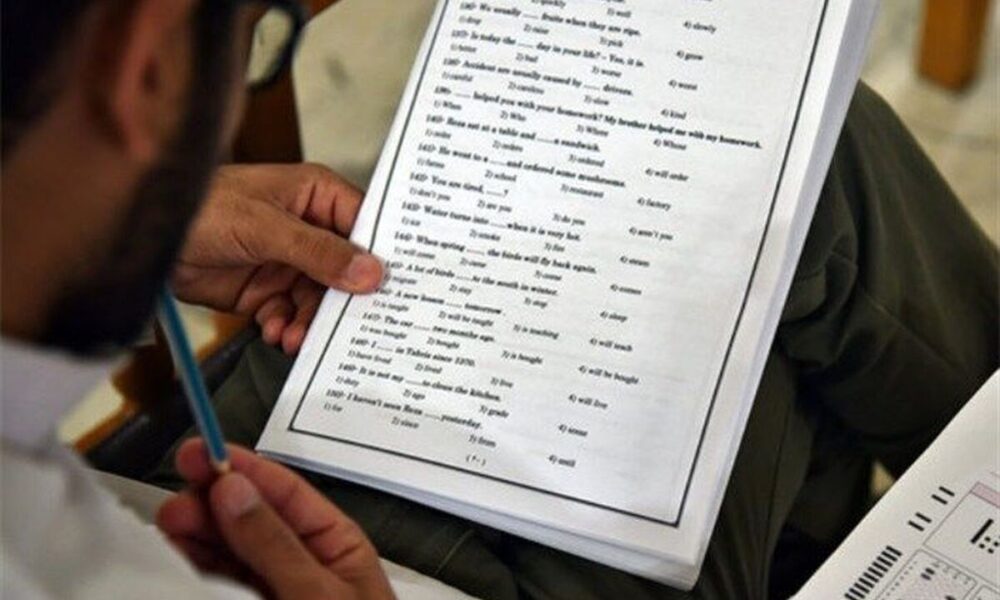 1) quickly 2) well 4) slowly
136)- We usually ..... fruits when they are ripe.
1) drop 2) raise 3) pick 4) grow
137)- Is today the ..... day in your life? – Yes, it is.
1) better 2) bad 3) worse 4) worst
138)- Accident are usually caused by ..... drivers.
1) careful 2) careless 3) slow 4) kind
139)- ..... helped you with your homework? My brother helped me with my homework.
1) When 2) Who 3) Where 4) Whose
140)- Reza sat at a table and ..... a sandwich.
1) order 2) orders 3) ordered 4) will order
141)- He went to a ..... and ordered some mushrooms.
1) farms 2) school 3) restaurant 4) factory
142)- You are tired, ..... ?
1) don't you 2) are you 3) do you 4) aren't you
143)- Water turns into ..... when it is very hot.
1) ice 2) smoke 3) fire 4) steam
144)- When spring ..... the birds will fly back again.
1) will come 2) came 3) come 4) comes
A lot of birds ..... to the south in winter.
migrate 2) stay 3) stop 4) sleep
A new lesson ..... tomorrow.
1) is taught 2) will be taught 3) is teaching 4) will teach
147)- The car ..... two months ago.
1) was bought 2) bought 3) is bought 4) will be bought
148)- I ..... in Tabriz since 1370.
1) have lived 2) lived 3) live 4) will live
149)- It is not my ..... to clean the kitchen.
1) duty 2) age 3) grade 4) sense
150)- I haven't seen Reza ..... yesterday.
1) for 2) since 3) from 4) until